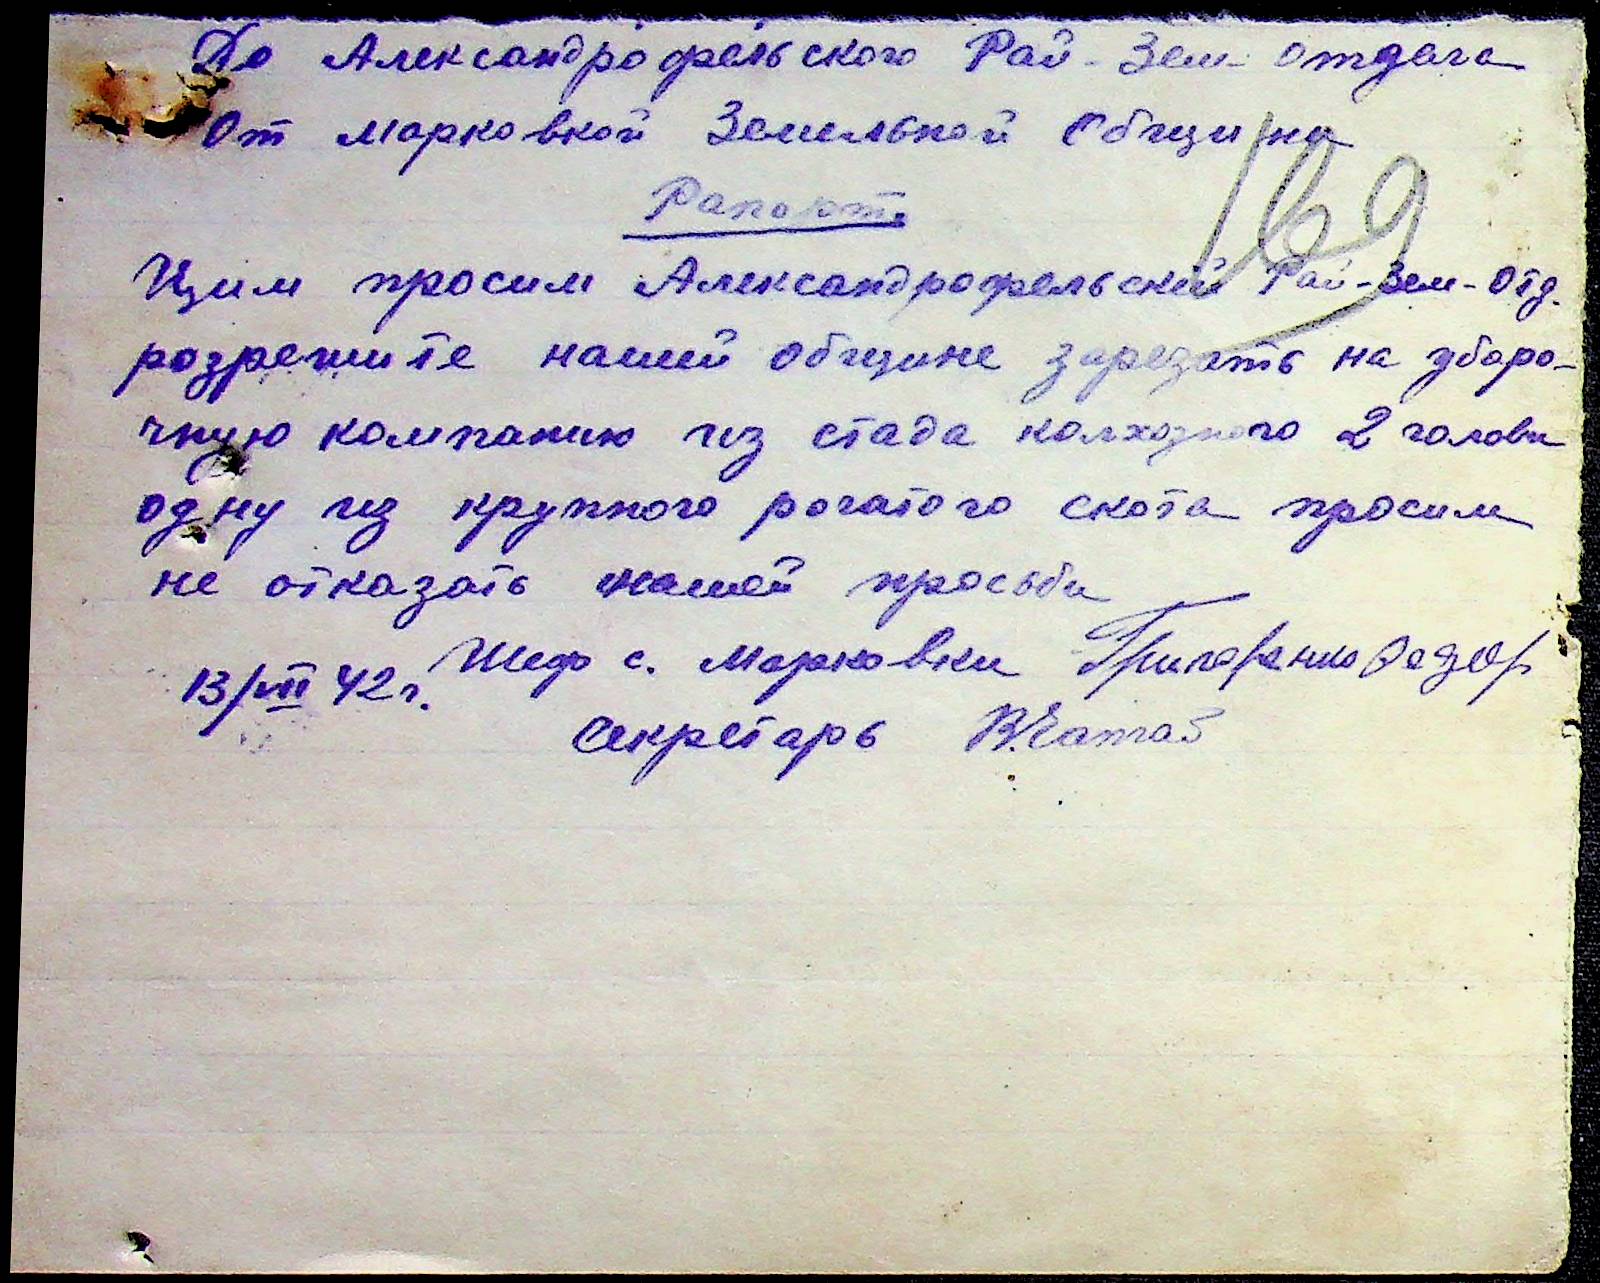 До Александрофельского Рай-Зем-отдела
От Марковкой Земельной Общины
169
Рапорт
Цим просим Александрофельский Рай-Зем-Отд.
розрешите нашей общине зарезать на уборо-
чную компанию из стада колхозного 2 головы
одну из крупного рогатого скота просим
не отказать нашей просьбы
13/VII 42 г. Шеф с. Марковки Григоренко Федор
Секретарь